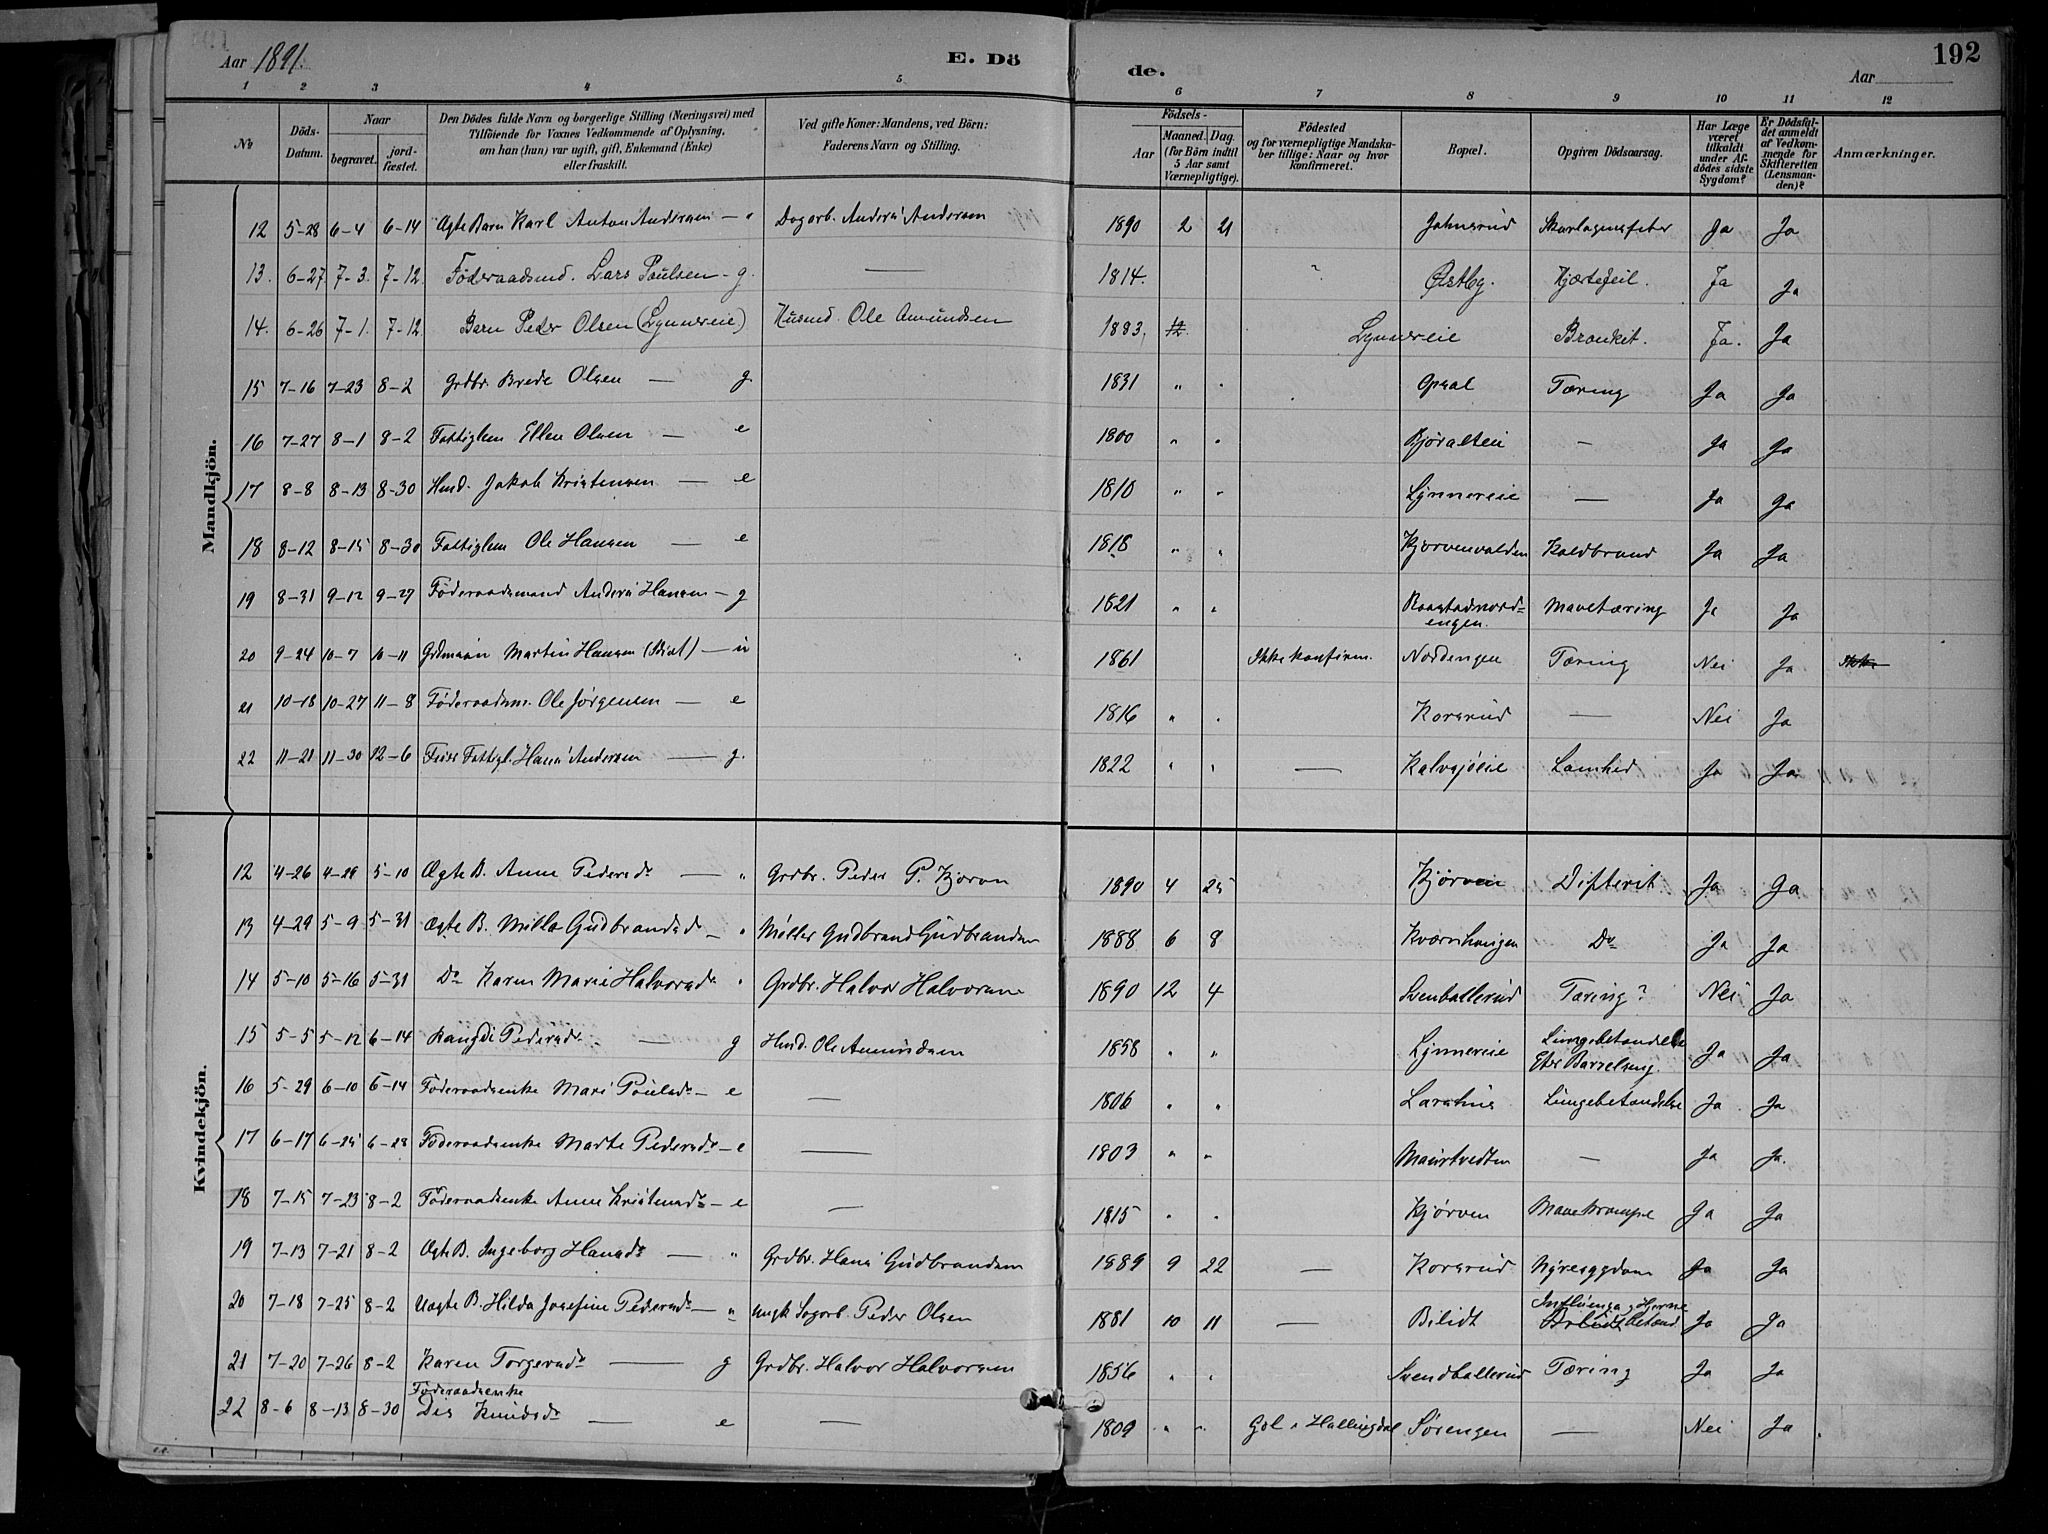 Aar 1891. E. Dö de. Aar 192
1 2 3 4 5 6 7 8 9 10 11 12
No Döds-Datum. Naar begravet. jordfæstet. Den Dödes fulde Navn og borgerlige Stilling (Næringsvei) med Tilföiende for Voxnes Vedkommende af Oplysning, om han (hun) var ugift, gift, Enkemand (Enke) eller fraskilt. Ved gifte Koner: Mandens, ved Börn: Faderens Navn og Stilling. Födsels- Aar Maaned. Dag. (for Börn indtil 5 Aar samt Værnepligtige). Födested og for værnepligtige Mandskaber tillige: Naar og hvor konfirmeret. Bopæl. Opgiven Dödsaarsag. Har Læge været tilkaldt under Afdödes sidste Sygdom? Er Dödsfaldet anmeldt af Vedkommende for Skifteretten (Lensmanden)? Anmærkninger.
Mandkjön.
12 5-28 6-4 6-14 Ægte Barn Karl Anton Andersen — " Dagarb. Anders Andersen 1890 2 21 Johnsrud Skarlagensfeber Ja Ja
13. 6-27. 7-3. 7-12. Føderaadsmd. Lars Paulsen - g. — 1814. " Østby. Hjertefeil. Ja Ja
14. 6-26 7-1. 7-12. Barn Peder Olsen (Lynnereie) Husmd. Ole Amundsen 1883. 12. Lynnereie Bronkit. Ja. Ja
15 7-16 7-23 8-2 Grdbr. Brede Olsen — g. 1831 " " Opsal Tæring Ja Ja
16 7-27 8-1 8-2 Fattiglem Ellen Olsen — e 1800 " " — Ja Ja
17 8-8 8-13 8-30 Hmd. Jakob Kristensen — e 1810 " " Lynnereie — Ja Ja
18 8-12 8-15 8-30 Fattiglem Ole Hansen — e 1818 " " Kjørvenvolden Koldbrand Ja Ja
19 8-31 9-12 9-27 Føderaadsmand Anders Hansen - g 1821 " " Raastadnordengen. Mavetæring Ja Ja
20 9-24 10-7 10-11 Martin Hansen — u 1861 Ikke konfirm. Nordengen Tæring Nei Ja Ikke
21 10-18 10-27 11-8 Føderaadsm. Ole Jørgensen — e 1816 " " Korsrud — Nei Ja
22 11-21 11-30 12-6 Fattigl. Hans Andersen — g. 1822 " " — Kalvsjøeie Lamhed Ja Ja
Kvindekjön.
12 4-26 4-29 5-10 Ægte B. Anne Pedersdr — " Grdbr. Peder P. Kjørven 1890 4 25 Kjørven Difterit. Ja Ja
13 4-29 5-9 5-31 Ægte B. Milla Gudbrandsd — " Møller Gudbrand Gudbrandsen 1888 6 8 Kværnhaugen Do Ja Ja
14 5-10 5-16 5-31 Do Karen Marie Halvorsdr " Grdbr. Halvor Halvorsen 1890 12 4 Svenballerud Tæring? Nei Ja
15 5-5 5-12 6-14 Rangdi Pedersdr. — g Hmd. Ole Amundsen 1858 " " Lynnereie Lungebetændelse Efter Barselseng. Ja Ja
16 5-29 6-10 6-14 Føderaadsenke Mari Paulsdr — e — 1806 " " Larshus Lungebetændelse Ja Ja
17 6-17 6-25 6-28 Føderaadsenke Marte Pedersdr — e — 1803 " " Maurtvedten — Ja Ja.
18 7-15 7-23 8-2 Føderaadsenke Anne Kristensdr — e — 1815 " " Kjørven Mavekrampe Ja Ja
19 7-13 7-21 8-2 Ægte B. Ingeborg Hansdr — " Grdbr. Hans Gudbrandsen 1889 9 22 — Korsrud Nyresygdom Ja Ja
20 7-18 7-25 8-2 Uægte B. Hilda Josefine Pedersdr — " ungk Sagarb. Peder Olsen 1881 10 11 — Bilidt Influenza, Hjernebetænd. Ja Ja
21 7-20 7-26 8-2 Karen Torgersdr — g Grdbr. Halvor Halvorsen 1856 " " Svendballerud Tæring Ja Ja
22 8-6 8-13 8-30 Føderaadsenke Dis Knudsdr — e — 1809 " " Gol i Hallingdal Sørengen — Nei Ja